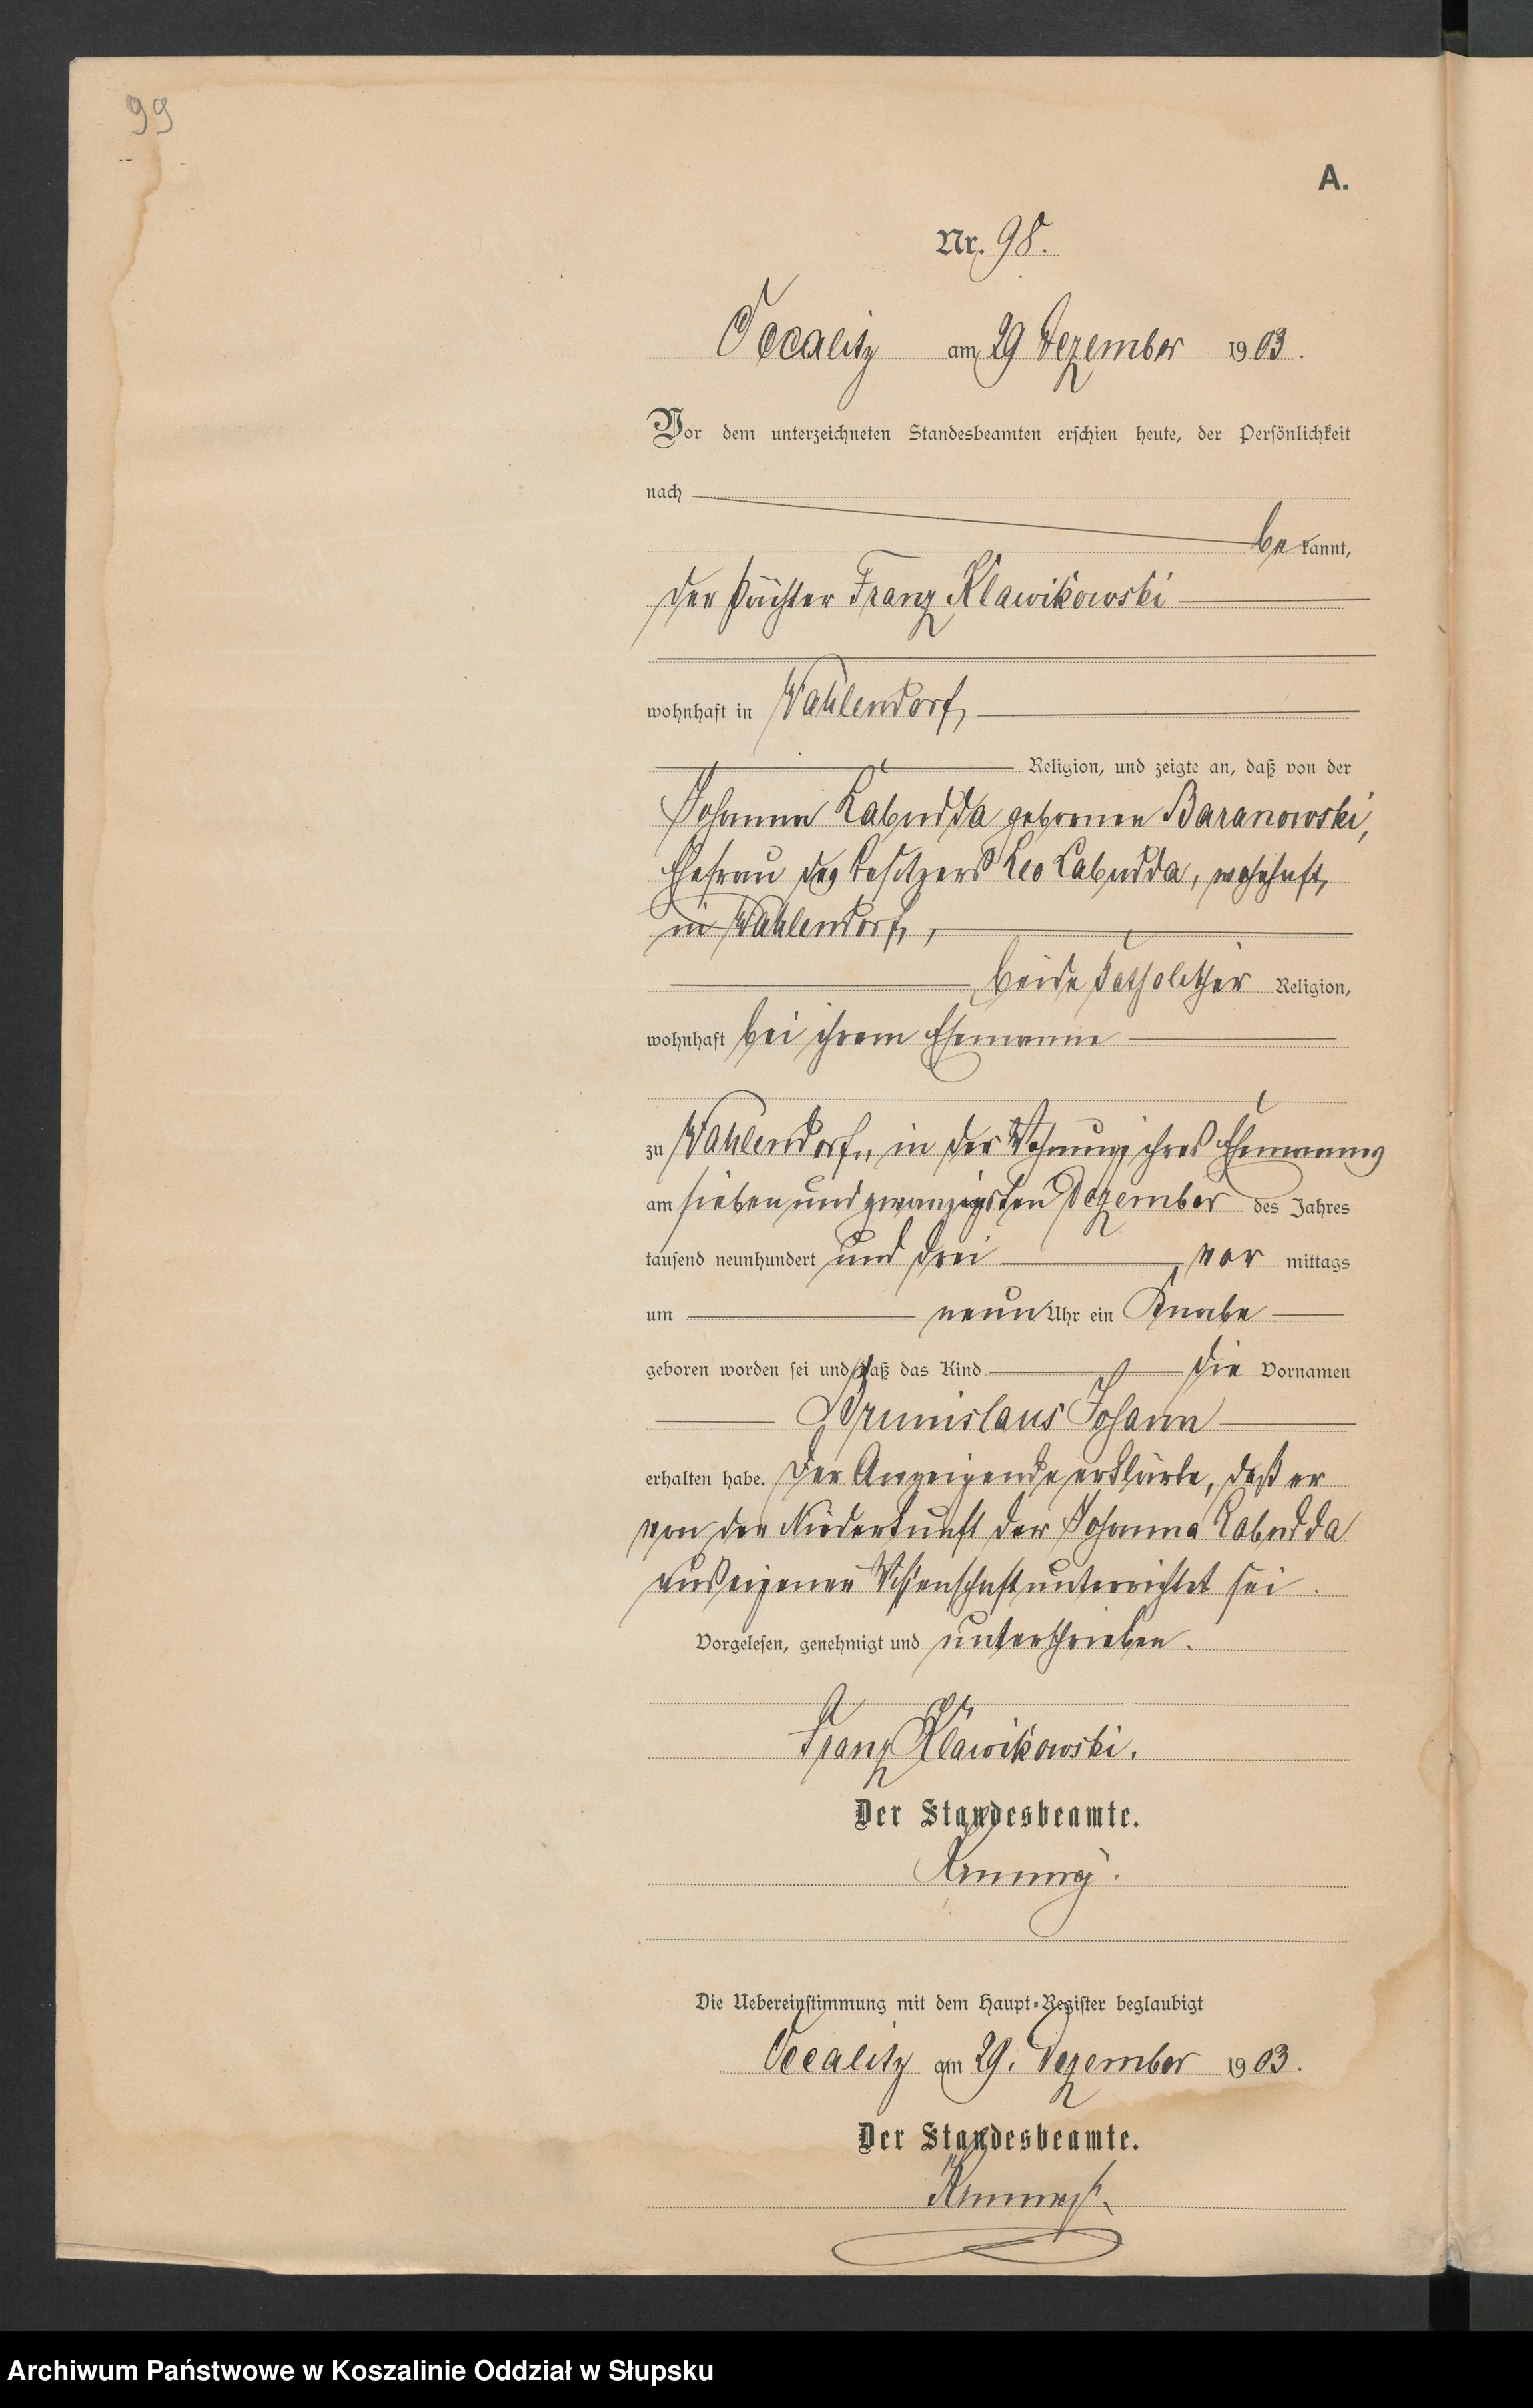 99
A.
Nr. 98.
Occalitz am 29 Dezember 1903.
Vor dem unterzeichneten Standesbeamten erschien heute, der Persönlichkeit
nach
be kannt,
der Pächter Franz Klawikowski
wohnhaft in Wahlendorf,
Religion, und zeigte an, daß von der
Johanna Labudda gebornen Baranowski,
Ehefrau des Besitzers Leo Labudda, wohnhaft
in Wahlendorf,
beide katholischer Religion,
wohnhaft bei ihrem Ehemanne
zu Wahlendorf, in der Wohnung ihres Ehemannes
am sieben und zwanzigsten Dezember des Jahres
tausend neunhundert und drei vor mittags
um neun Uhr ein Knabe
geboren worden sei und daß das Kind die Vornamen
Johann
erhalten habe. Der Anzeigende erklärte, daß er
von der Niederkunft der Johanna Labudda
aus eigener Wissenschaft unterrichtet sei.
Vorgelesen, genehmigt und unterschrieben.
Franz Klawikowski.
Der Standesbeamte.
Die Uebereinstimmung mit dem Haupt-Register beglaubigt
Occalitz am 29. Dezember 1903.
Der Standesbeamte.
Archiwum Państwowe w Koszalinie Oddział w Słupsku